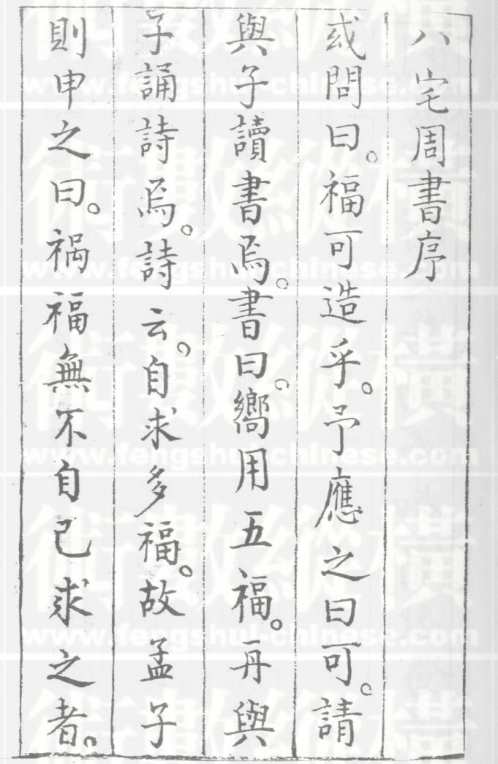 八宅周書序
或問曰。福可造乎。予應之曰可。請
與子讀書焉。書曰。嚮用五福。再與
子誦詩焉。詩云。自求多福。故孟子
則申之曰。禍福無不自己求之者。